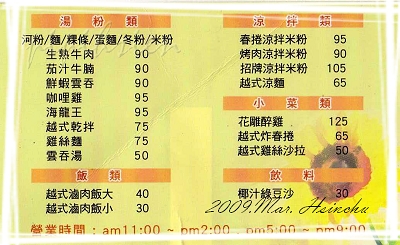 湯粉類
河粉/麵/粿條/蛋麵/冬粉/米粉
生熟牛肉 90
茄汁牛腩 90
鮮蝦雲吞 90
咖哩雞 95
海龍王 95
越式乾拌 75
雞絲麵 75
雲吞湯 50
飯類
越式滷肉飯大 40
越式滷肉飯小 30
涼拌類
春捲涼拌米粉 95
烤肉涼拌米粉 90
招牌涼拌米粉 105
越式涼麵 65
小菜類
花雕醉雞 125
越式炸春捲 65
越式雞絲沙拉 50
飲料
椰汁綠豆沙 30
2009.Mar. Hsinchu
營業時間：am11:00 ~ pm2:00 pm5:00 ~ pm9:00